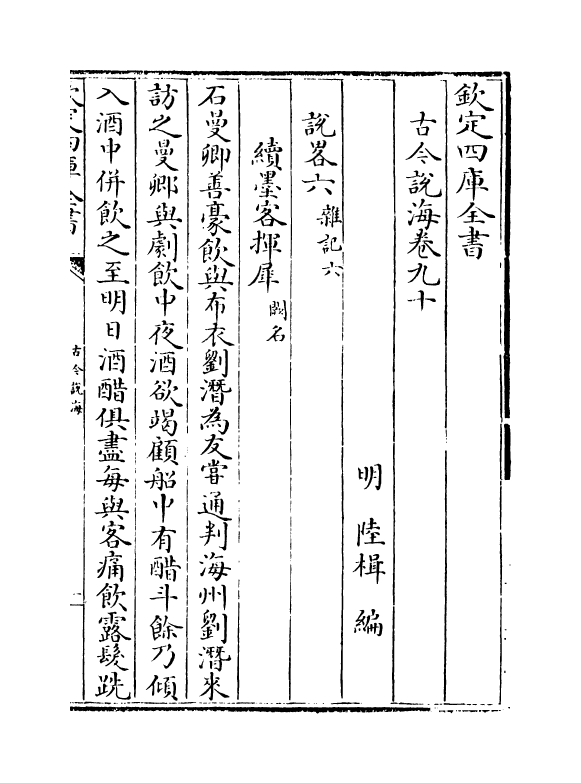 欽定四庫全書
古今說海卷九十
明 陸楫 編
說畧六 雜記六
續墨客揮犀 闕名
石曼卿善豪飲與布衣劉潛為友嘗通判海州劉潛來
訪之曼卿與劇飲中夜酒欲竭顧船中有醋斗餘乃傾
入酒中併飲之至明日酒醋俱盡每與客痛飲露髮跣
欽定四庫全書
古今說海
一